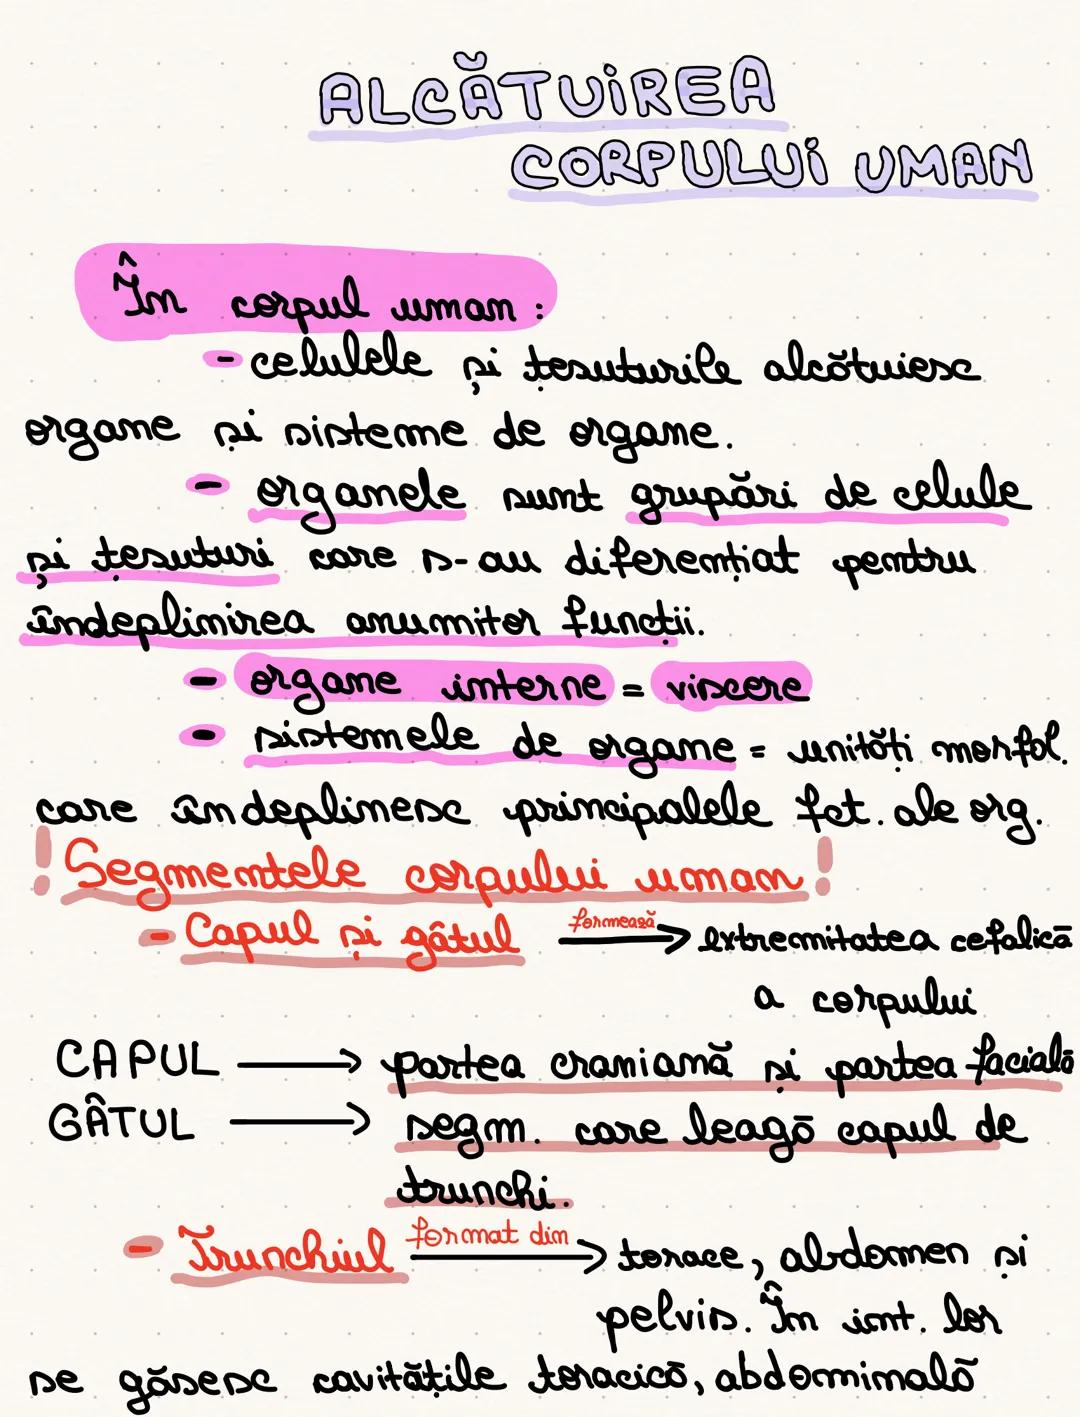 ALCĂTUIREA
CORPULUI UMAN
În corpul uman:
- celulele și țesuturile alcătuiesc
organe și sisteme de organe.
- organele sunt grupări de celule
și țesuturi care s-au diferențiat pentru
îndeplinirea anumitor funcții.
- organe interne = viscere
- sistemele de organe = unități morfol.
care îndeplinesc principalele fct. ale org.
! Segmentele corpului uman !
- Capul și gâtul formează → extremitatea cefalică
a corpului
CAPUL → partea craniană și partea facială
GÂTUL → segm. care leagă capul de
trunchi.
- Trunchiul format din → torace, abdomen și
pelvis. În int. lor
se găsesc cavitățile toracică, abdominală